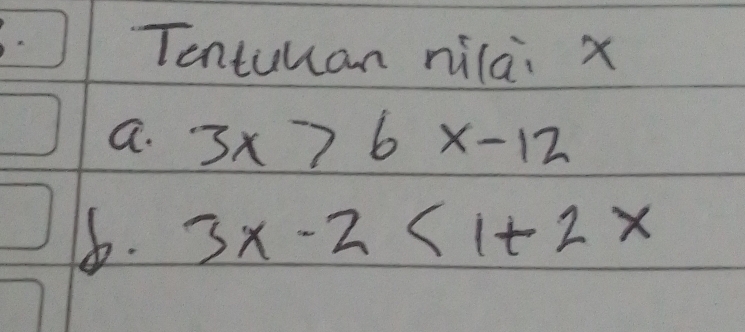 Tentukan nilai x
a. 3x > 6 x - 12
b. 3x - 2 < 1 + 2 x